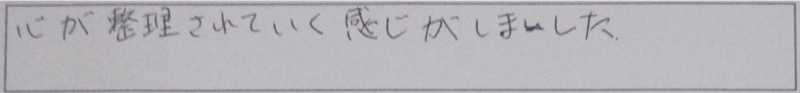 心が整理されていく感じがしました